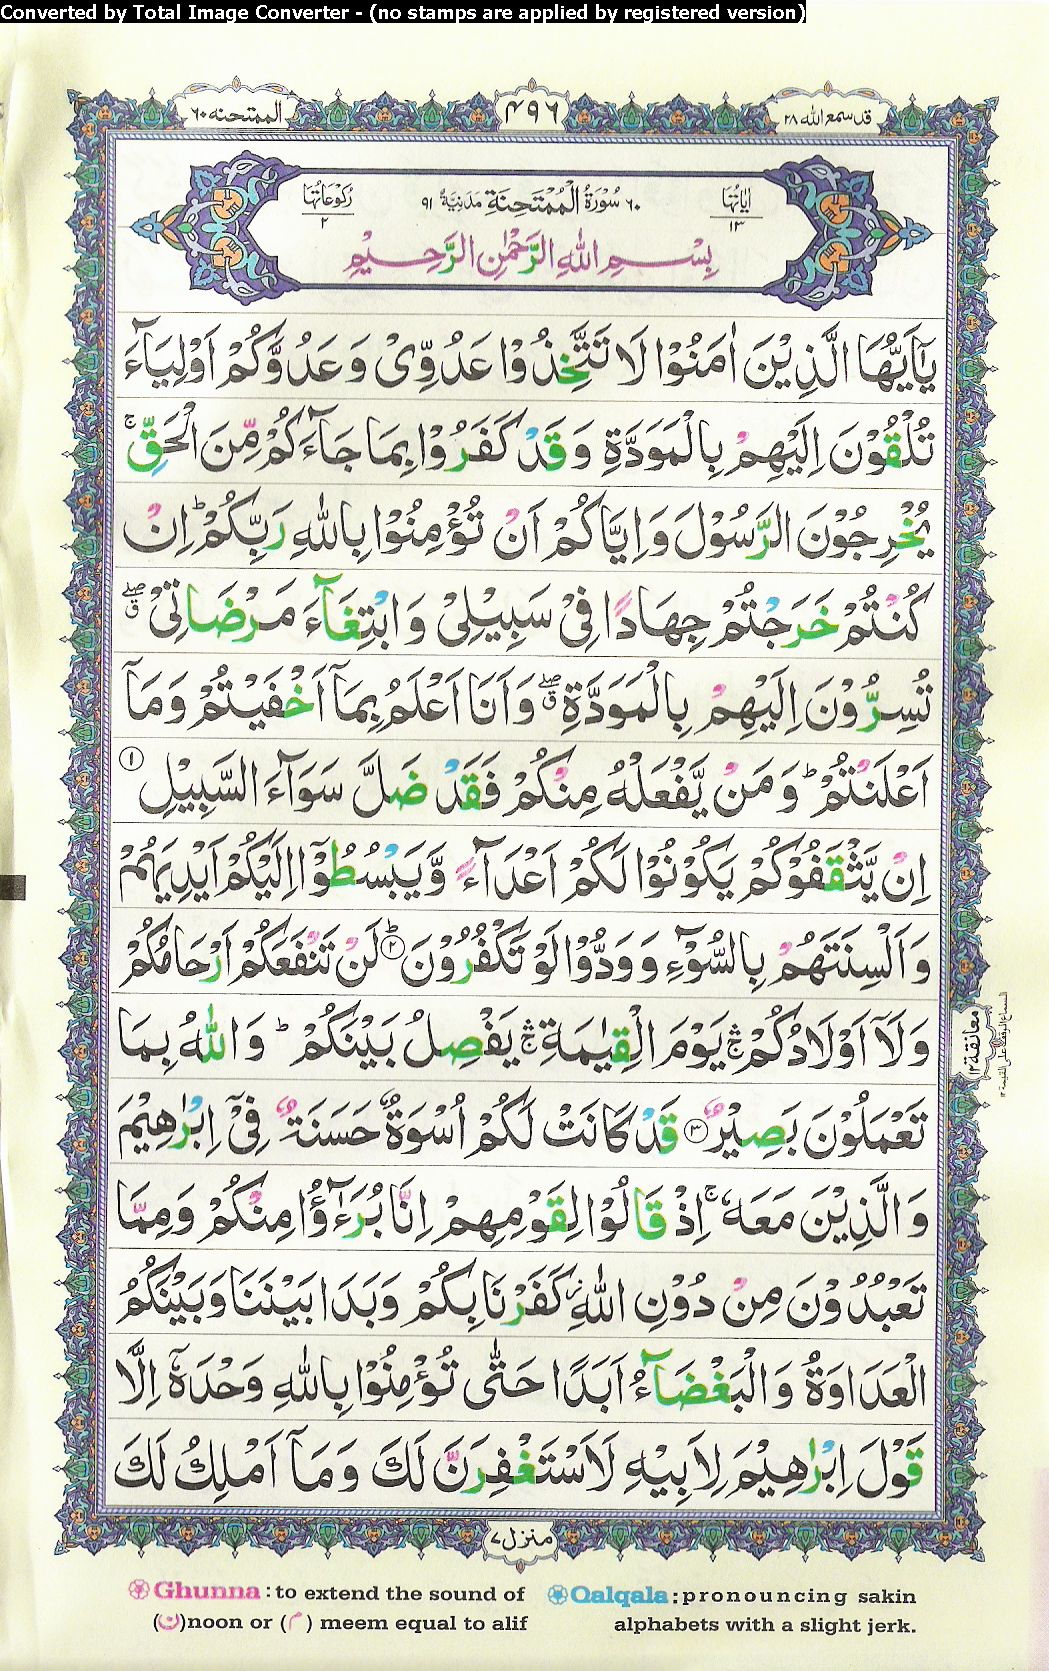 Converted by Total Image Converter - (no stamps are applied by registered version)
قد سمع الله ٢٨
٤٩٦
الممتحنه ٦٠
اٰیَاتُهَا ١٣
٦٠ سُوْرَةُ الْمُمْتَحِنَةِ مَدَنِيَّةٌ ٩١
رُكُوْعَاتُهَا ٢
بِسْمِ اللهِ الرَّحْمٰنِ الرَّحِيْمِ
يٰۤاَيُّهَا الَّذِيْنَ اٰمَنُوْا لَا تَتَّخِذُوْا عَدُوِّيْ وَعَدُوَّكُمْ اَوْلِيَآءَ
تُلْقُوْنَ اِلَيْهِمْ بِالْمَوَدَّةِ وَقَدْ كَفَرُوْا بِمَا جَآءَكُمْ مِّنَ الْحَقِّ ۚ
يُخْرِجُوْنَ الرَّسُوْلَ وَاِيَّاكُمْ اَنْ تُؤْمِنُوْا بِاللهِ رَبِّكُمْ ؕ اِنْ
كُنْتُمْ خَرَجْتُمْ جِهَادًا فِيْ سَبِيْلِيْ وَابْتِغَآءَ مَرْضَاتِيْ ۖق
تُسِرُّوْنَ اِلَيْهِمْ بِالْمَوَدَّةِ ۖق وَاَنَا اَعْلَمُ بِمَاۤ اَخْفَيْتُمْ وَمَاۤ
اَعْلَنْتُمْ ؕ وَمَنْ يَّفْعَلْهُ مِنْكُمْ فَقَدْ ضَلَّ سَوَآءَ السَّبِيْلِ ١
اِنْ يَّثْقَفُوْكُمْ يَكُوْنُوْا لَكُمْ اَعْدَآءً وَّيَبْسُطُوْۤا اِلَيْكُمْ اَيْدِيَهُمْ
وَاَلْسِنَتَهُمْ بِالسُّوْٓءِ وَوَدُّوْا لَوْ تَكْفُرُوْنَ ؕ ٢ لَنْ تَنْفَعَكُمْ اَرْحَامُكُمْ
وَلَاۤ اَوْلَادُكُمْ ۛۚ يَوْمَ الْقِيٰمَةِ ۛۚ يَفْصِلُ بَيْنَكُمْ ؕ وَاللهُ بِمَا
معانقة ١٣
تَعْمَلُوْنَ بَصِيْرٌ ٣ قَدْ كَانَتْ لَكُمْ اُسْوَةٌ حَسَنَةٌ فِيْۤ اِبْرٰهِيْمَ
وَالَّذِيْنَ مَعَهٗ ۚ اِذْ قَالُوْا لِقَوْمِهِمْ اِنَّا بُرَءٰٓؤُا مِنْكُمْ وَمِمَّا
تَعْبُدُوْنَ مِنْ دُوْنِ اللهِ ز كَفَرْنَا بِكُمْ وَبَدَا بَيْنَنَا وَبَيْنَكُمُ
الْعَدَاوَةُ وَالْبَغْضَآءُ اَبَدًا حَتّٰى تُؤْمِنُوْا بِاللهِ وَحْدَهٗۤ اِلَّا
قَوْلَ اِبْرٰهِيْمَ لِاَبِيْهِ لَاَسْتَغْفِرَنَّ لَكَ وَمَاۤ اَمْلِكُ لَكَ
منزل ٧
Ghunna : to extend the sound of
(ن)noon or (م) meem equal to alif
Qalqala : pronouncing sakin
alphabets with a slight jerk.